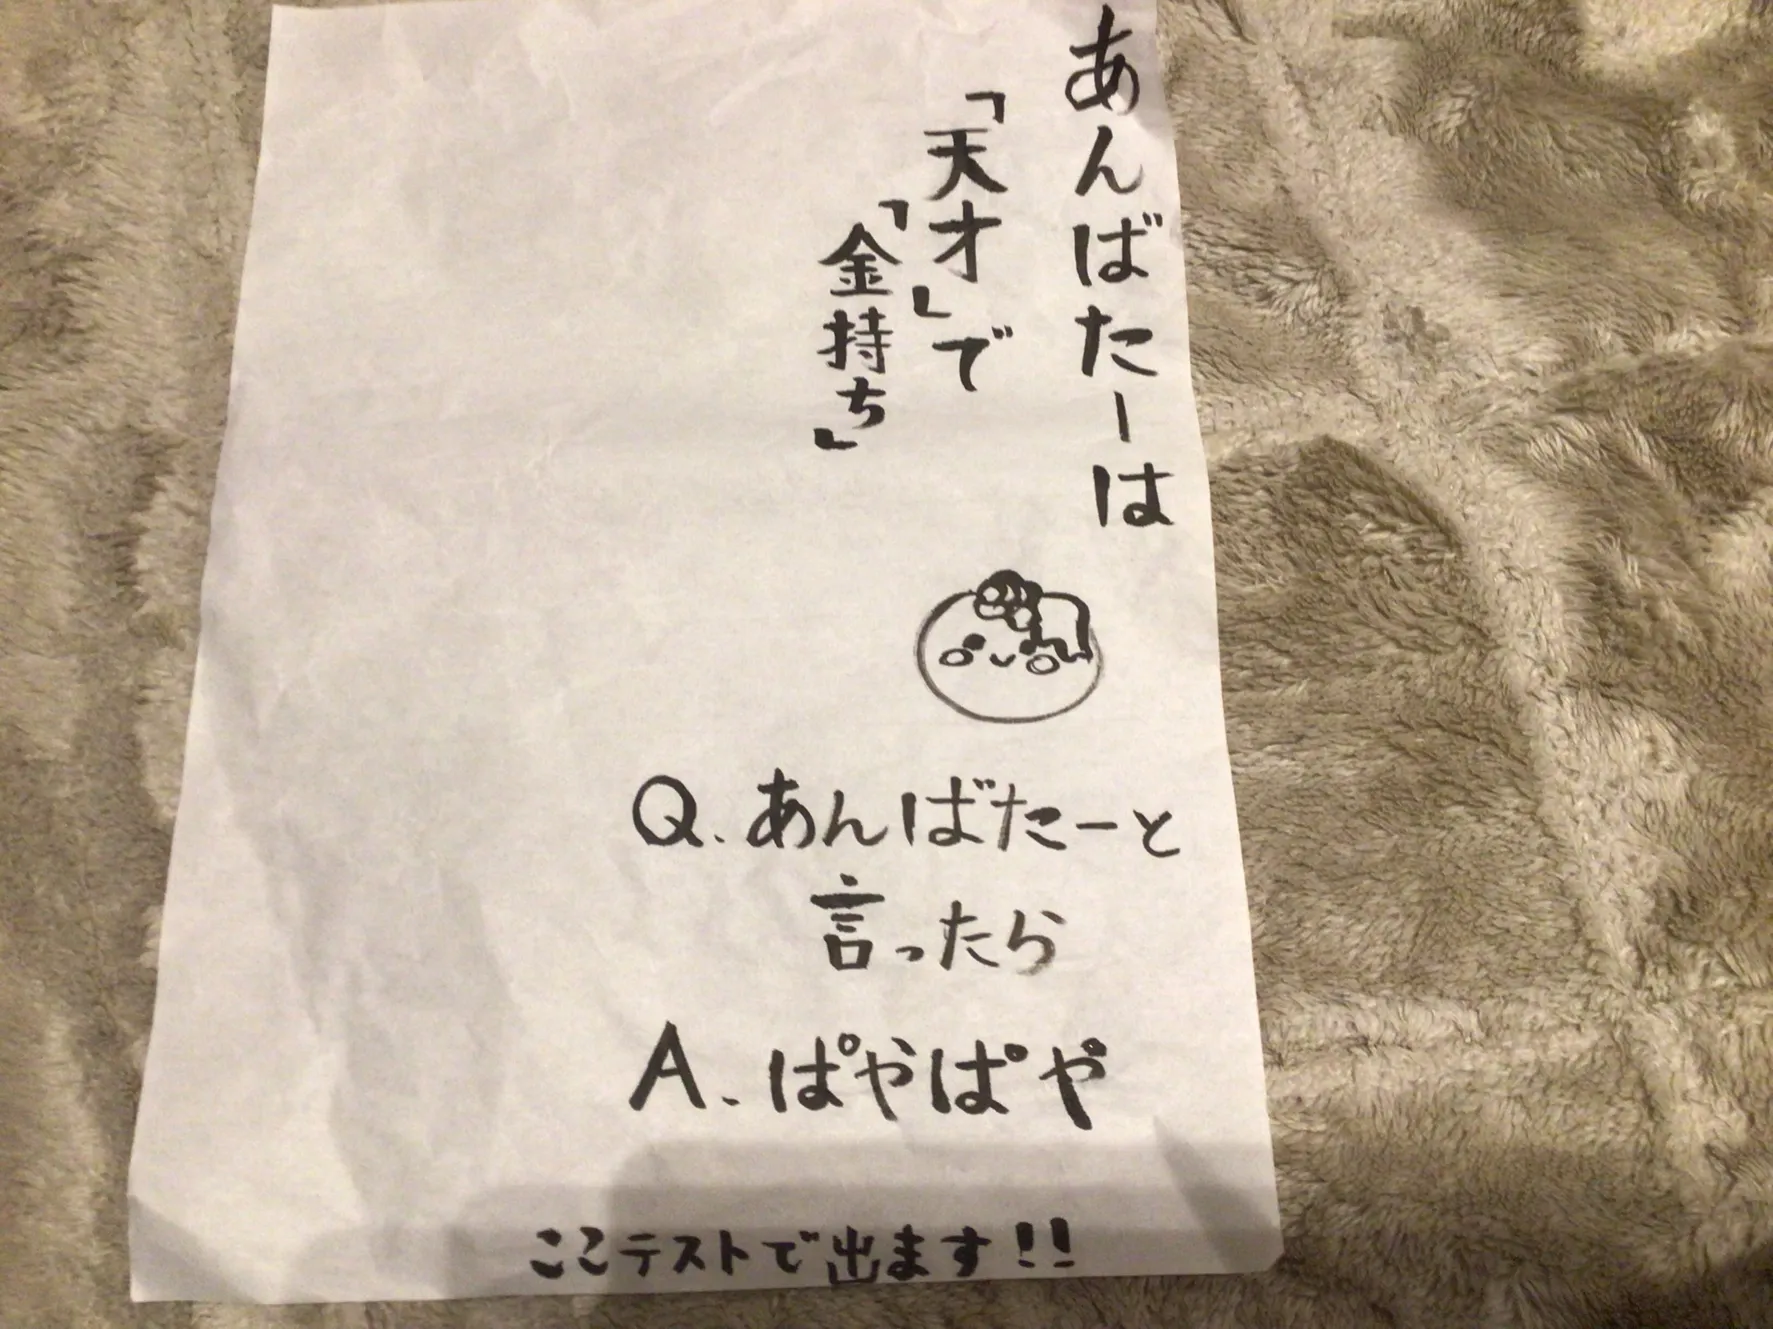 あんばたーは
「天才」で
「金持ち」
Q.あんばたーと
言ったら
A.ぱやぱや
ここテストで出ます!!